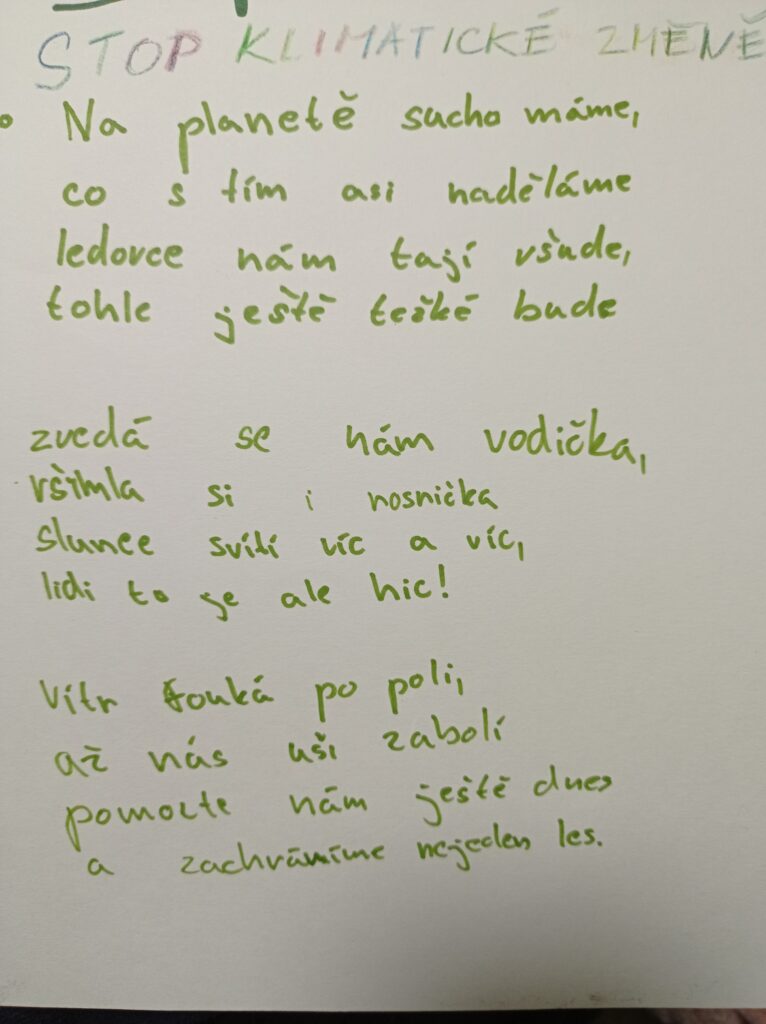 STOP KLIMATICKÉ ZMĚNĚ
Na planetě sucho máme,
co s tím asi naděláme
ledovce nám tají všude,
tohle ještě težké bude
zvedá se nám vodička,
všimla si i nosnička
slunce svítí víc a víc,
lidi to je ale hic!
Vítr fouká po poli,
až nás uši zabolí
pomozte nám ještě dnes
a zachráníme nejeden les.